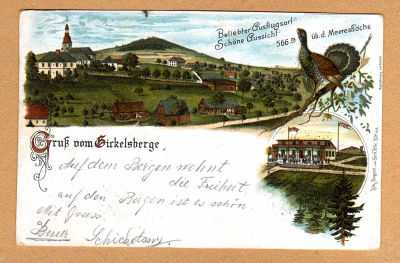 Beliebter Ausflugsort.
Schöne Aussicht.
566 m üb. d. Meeresfläche
Gruß vom Sirkelsberge
Auf dem Bergen wohnt
die Freiheit,
auf den Bergen ist es schön
Mit Gruss